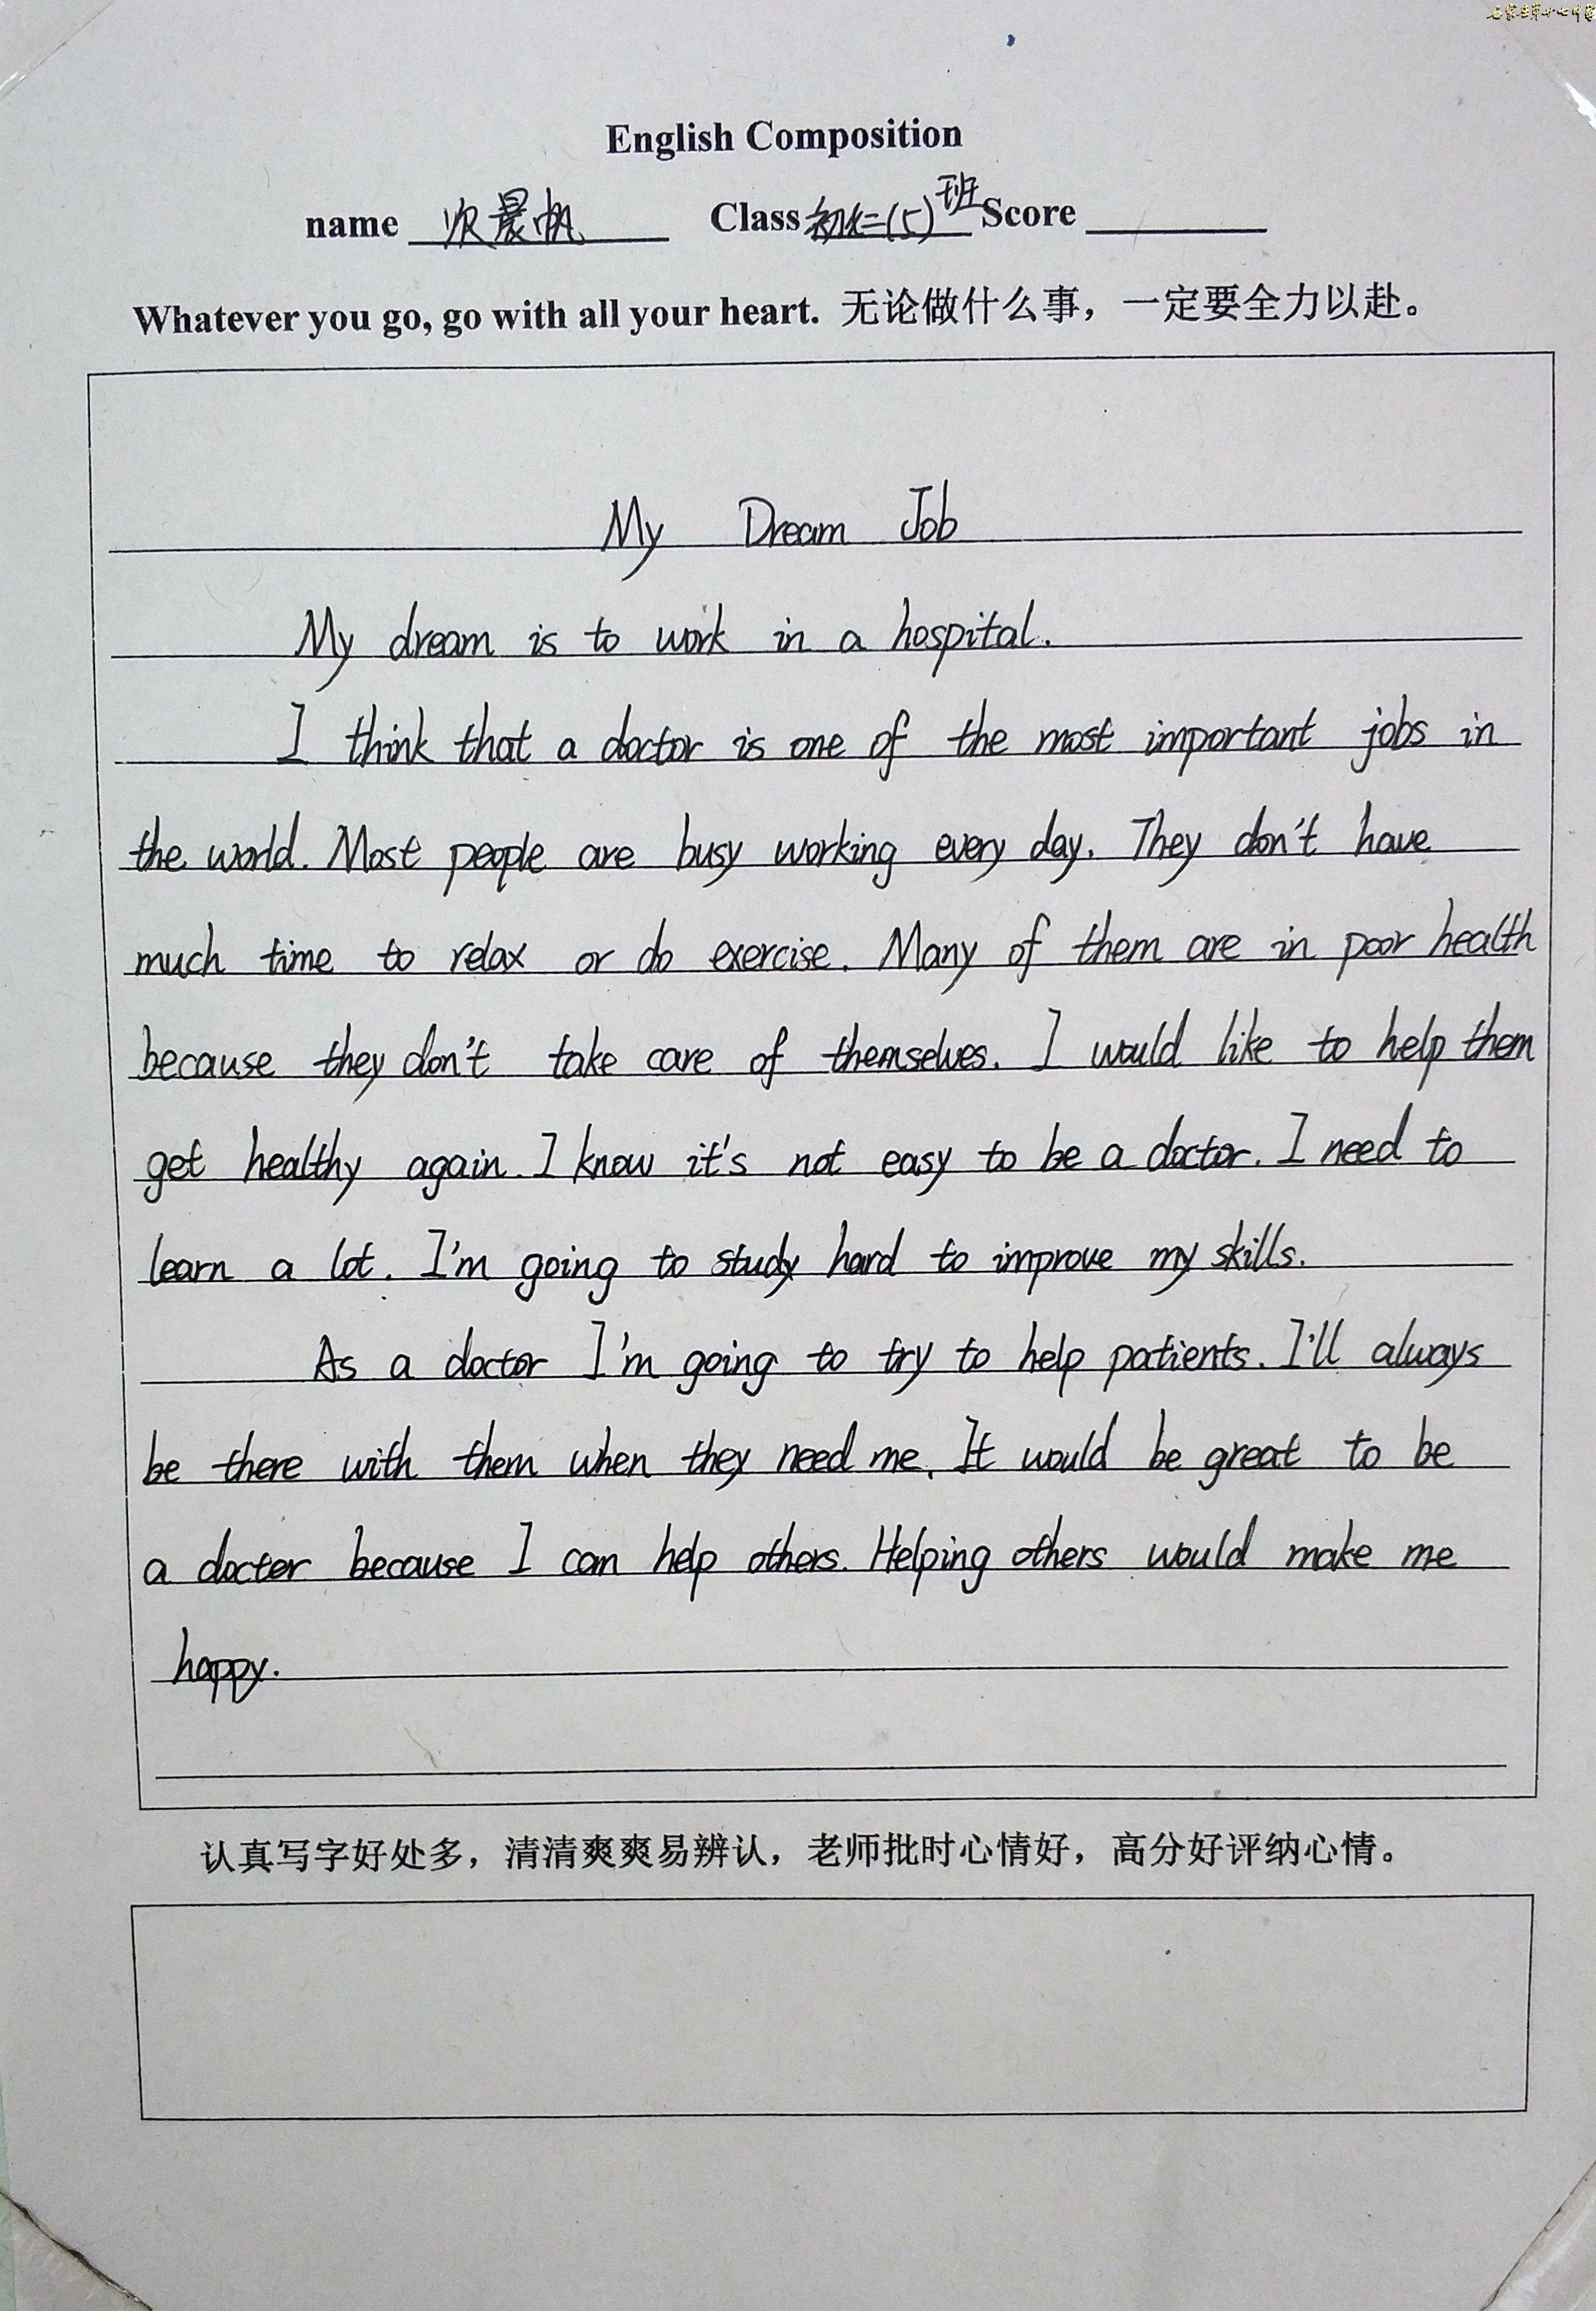 English Composition
name 次晨帆 Class 初二(5)班 Score
Whatever you go, go with all your heart. 无论做什么事，一定要全力以赴。
My Dream Job
My dream is to work in a hospital.
I think that a doctor is one of the most important jobs in
the world. Most people are busy working every day. They don't have
much time to relax or do exercise. Many of them are in poor health
because they don't take care of themselves. I would like to help them
get healthy again. I know it's not easy to be a doctor. I need to
learn a lot. I'm going to study hard to improve my skills.
As a doctor I'm going to try to help patients. I'll always
be there with them when they need me. It would be great to be
a doctor because I can help others. Helping others would make me
happy.
认真写字好处多，清清爽爽易辨认，老师批时心情好，高分好评纳心情。